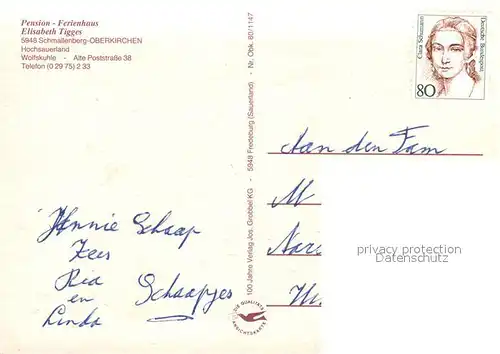 Pension - Ferienhaus
Elisabeth Tigges
5948 Schmallenberg-OBERKIRCHEN
Hochsauerland
Wolfskuhle - Alte Poststraße 38
Telefon (0 29 75) 2 33
100 Jahre Verlag Jos. Grobbel KG - 5948 Fredeburg (Sauerland) - Nr. Obk. 80/1147
Clara Schumann
Deutsche Bundespost
80
Aan den Fam
M
privacy protection
Datenschutz
Hannie Schaap
Kees
Ria Schaapjes
en
Linda
DIE QUALITÄTS
ANSICHTSKARTE